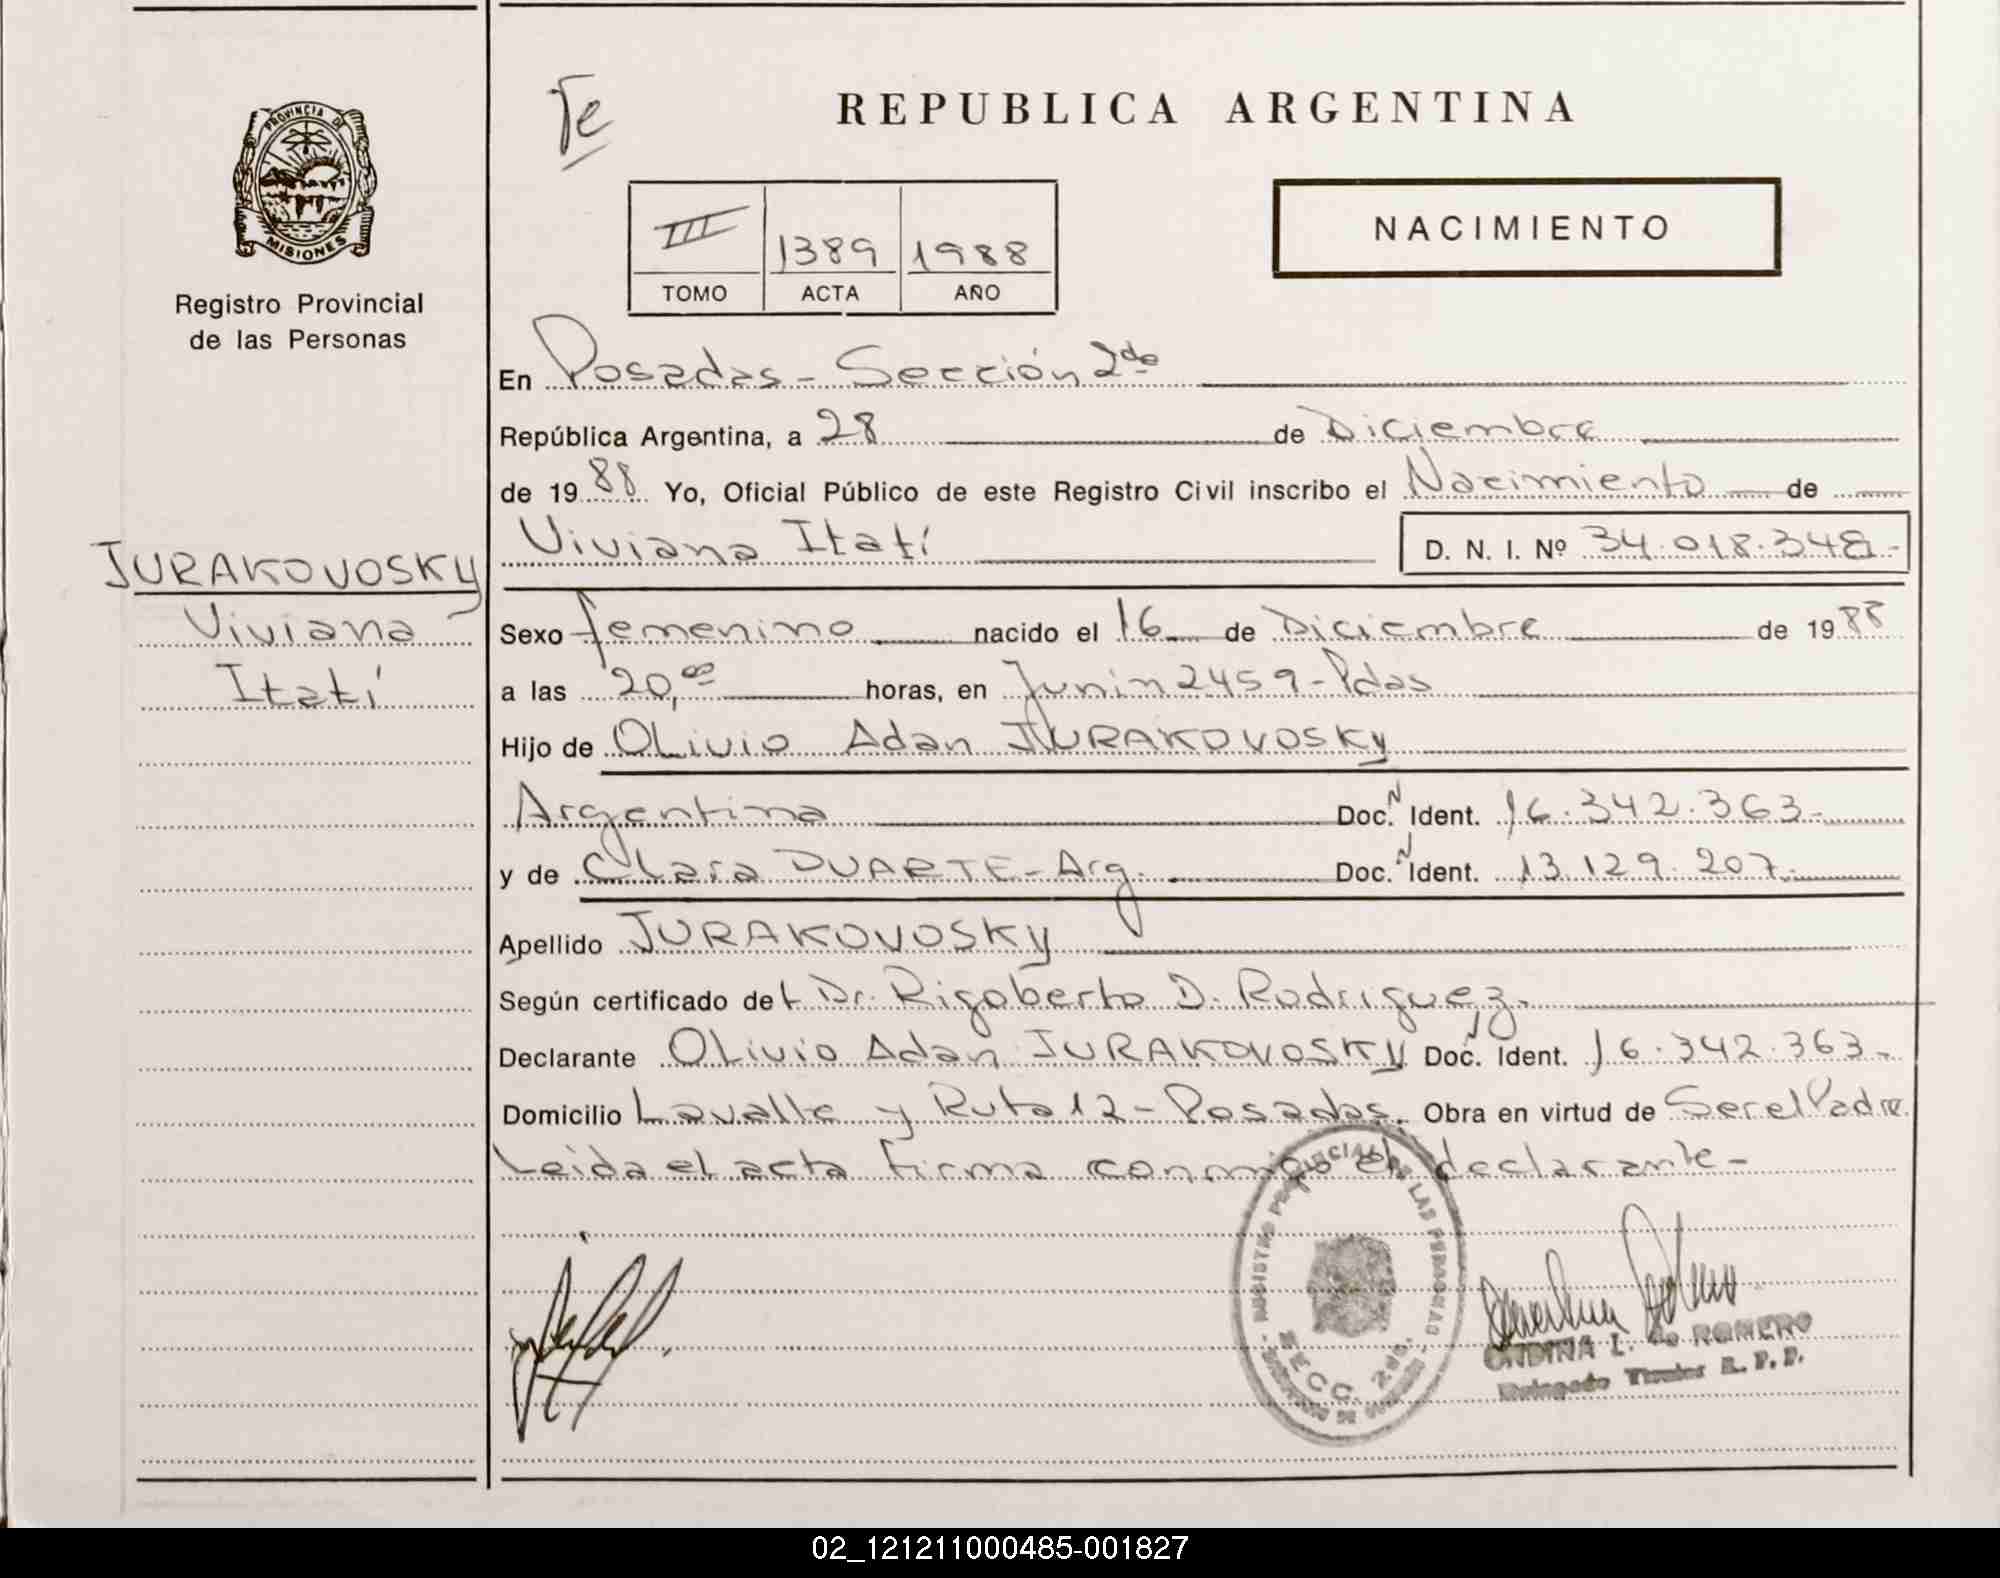 PROVINCIA DE
MISIONES
Registro Provincial
de las Personas
JURAKOVOSKY
Viviana
Itatí
Te
REPUBLICA ARGENTINA
NACIMIENTO
III 1389 1988
TOMO ACTA AÑO
En Posadas - Sección 2da
República Argentina, a 28 de Diciembre
de 1988 Yo, Oficial Público de este Registro Civil inscribo el Nacimiento de
Viviana Itatí D. N. I. Nº 34.018.348-
Sexo femenino nacido el 16 de Diciembre de 1988
a las 20,00 horas, en Junin 2459-Pdas
Hijo de Olivio Adan JURAKOVOSKY
Argentina Doc. N Ident. 16.342.363-
y de Clara DUARTE-Arg. Doc. N Ident. 13.129.207.-
Apellido JURAKOVOSKY
Según certificado del Dr. Rigoberto D. Rodriguez.
Declarante Olivio Adan JURAKOVOSKY Doc. N Ident. 16.342.363-
Domicilio Lavalle y Ruta 12-Posadas. Obra en virtud de Ser el Padre
Leida el acta firma conmigo el declarante-
REGISTRO PROVINCIAL DE LAS PERSONAS
SECC. 2da.
ONDINA L. de ROMERO
Delegado Titular R. P. P.
02_121211000485-001827